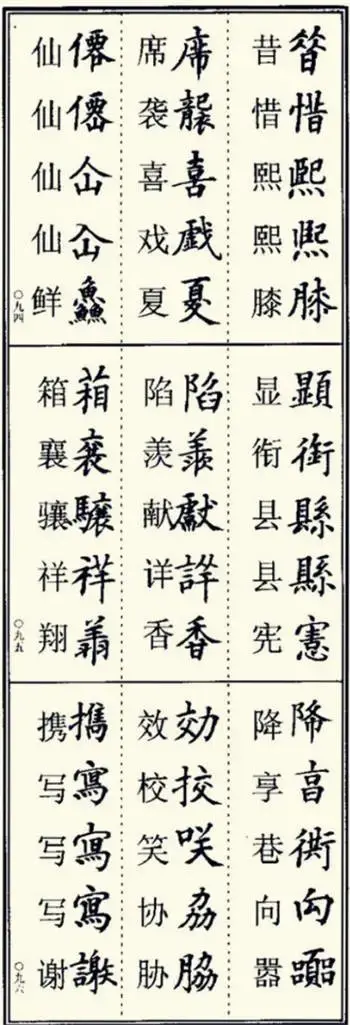 惜熙熈膝
昔惜熙熙膝
席襲喜戲夏
席袭喜戏夏
僊僊仚仚鱻
仙仙仙仙鲜
〇九四
顯衘縣縣憲
显衔县县宪
陷羨獻詳香
陷羡献详香
葙驤祥
箱襄骧祥翔
〇九五
降亯衖向
降享巷向嚣
効挍咲劦脇
效校笑协胁
㩗寫寫寫謝
携写写写谢
〇九六